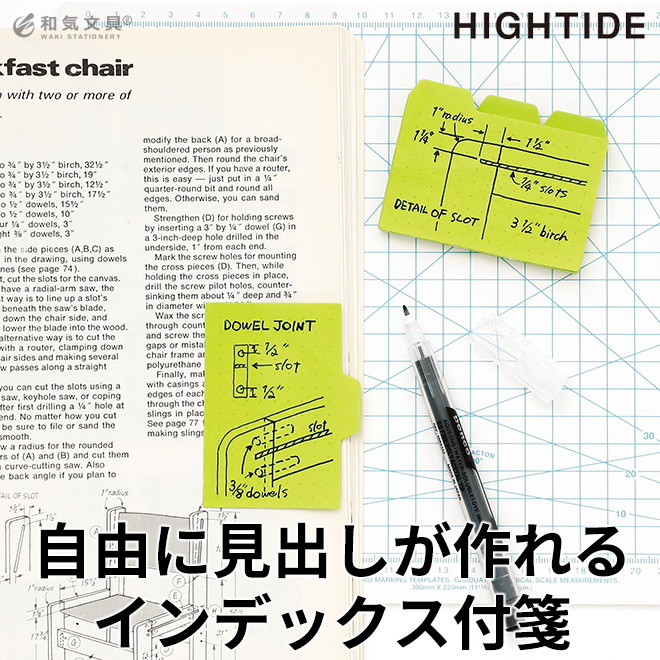 和気文具®
WAKI STATIONERY
HIGHTIDE
kfast chair
with two or more of
o ¾" by 3½" birch, 32½"
o ¾" by 3½" birch, 19"
o ¾" by 3½" birch, 12½"
o ¾" by 3½" birch, 17½"
o ½" dowels, 15½"
o ½" dowels, 10"
ur ¼" dowels, 3"
ght ⅜" dowels, 3"
n the side pieces (A,B,C) as
in the drawing, using dowels
nes (see page 74).
t, cut the slots for the canvas.
have a radial-arm saw, the
t way is to line up a slot's
beneath the saw's blade,
down the chair side, and
lower the blade into the wood.
alternative way is to cut the
with a router, clamping down
air sides and making several
w passes along a straight
you can cut the slots using a
saw, keyhole saw, or coping
fter first drilling a ¼" hole at
end. No matter how you cut
be sure to file or sand the
smooth.
w a radius for the rounded
ers of (A) and (B) and cut them
a curve-cutting saw. Also
e back angle if you plan to
modify the back (A) for a broad-
shouldered person as previously
mentioned. Then round the chair's
exterior edges. If you have a router,
this is easy — just put in a ¼"
quarter-round bit and round all
edges. Otherwise, you can sand
them.
Strengthen (D) for holding screws
by inserting a 3" by ¼" dowel (G) in
a 3-inch-deep hole drilled in the
underside, 1" from each end.
Mark the screw holes for mounting
the cross pieces (D). Then, while
holding the cross pieces in place,
drill the screw pilot holes, counter-
sinking them about ¼" deep and ¾"
in diameter
Wax the scr
through count
and screw the
gaps or mistak
chair frame an
polyurethane
Finally, mak
with casings a
edges of each
through the ch
slings in place
See page 77 f
making slings
1" radius
1¼"
1½"
¼" slots
DETAIL OF SLOT
3½" birch
DOWEL JOINT
½"
slot
½"
slot
⅜" dowels
DETAIL OF SLOT
1" radius
自由に見出しが作れる
インデックス付箋
MARKING TEMPLATES.
SCALE MEASUREMENTS.